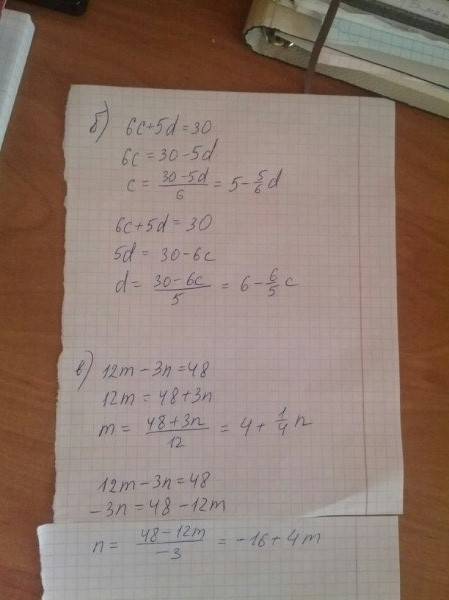 б) 6c+5d=30
6c = 30-5d
c = \frac{30-5d}{6} = 5 - \frac{5}{6}d
6c+5d=30
5d = 30-6c
d = \frac{30-6c}{5} = 6 - \frac{6}{5}c
в) 12m-3n=48
12m = 48+3n
m = \frac{48+3n}{12} = 4 + \frac{1}{4}n
12m-3n=48
-3n = 48-12m
n = \frac{48-12m}{-3} = -16+4m